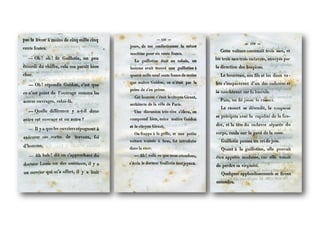 par le livrer à moins de cinq mille cinq
cents francs.
— Oh! oh! fit Guillotin, un peu
étourdi du chiffre, cela me paraît bien
cher.
— Oh! répondit Guidon, c'est que
ce n'est point de l'ouvrage comme les
autres ouvrages, celui-là.
— Quelle différence y a-t-il donc
entre cet ouvrage et un autre?
— Il y a que les ouvriers répugnent à
exécuter cette sorte de travaux, foi
d'homme.
— Ah bah! dit en s'approchant du
docteur Louis un des assistants, il y a
un ouvrier qui m'a offert, il y a huit
jours, de me confectionner la même
machine pour six cents francs.
Le guillotin était un rabais, un
homme avait trouvé une guillotine à
quatre mille neuf cents francs de moins
que maître Guidon, ce n'était pas la
peine de s'en priver.
Cet homme c'était le citoyen Giraut,
architecte de la ville de Paris.
Une discussion très-vive s'éleva, on
comprend bien, entre maître Guidon
et le citoyen Giraut.
On frappa à la grille, et une petite
voiture traînée à bras, fut introduite
dans la cour.
— Ah! voilà ce que nous attendons,
s'écria le docteur Guillotin tout joyeux.
Cette voiture contenait trois sacs, et
les trois sacs trois cadavres, envoyés par
la direction des hospices.
Le bourreau, son fils et les deux va-
lets s'emparèrent d'un des cadavres et
le couchèrent sur la bascule.
Puis, on fit jouer le ressort.
Le ressort se détendit, le couperet
se précipita avec la rapidité de la fou-
dre, et la tête du cadavre séparée du
corps, roula sur le pavé de la cour.
Guillotin poussa un cri de joie.
Quant à la guillotine, elle pouvait
être appelée madame, car elle venait
de perdre sa virginité.
Quelques applaudissements se firent
entendre.